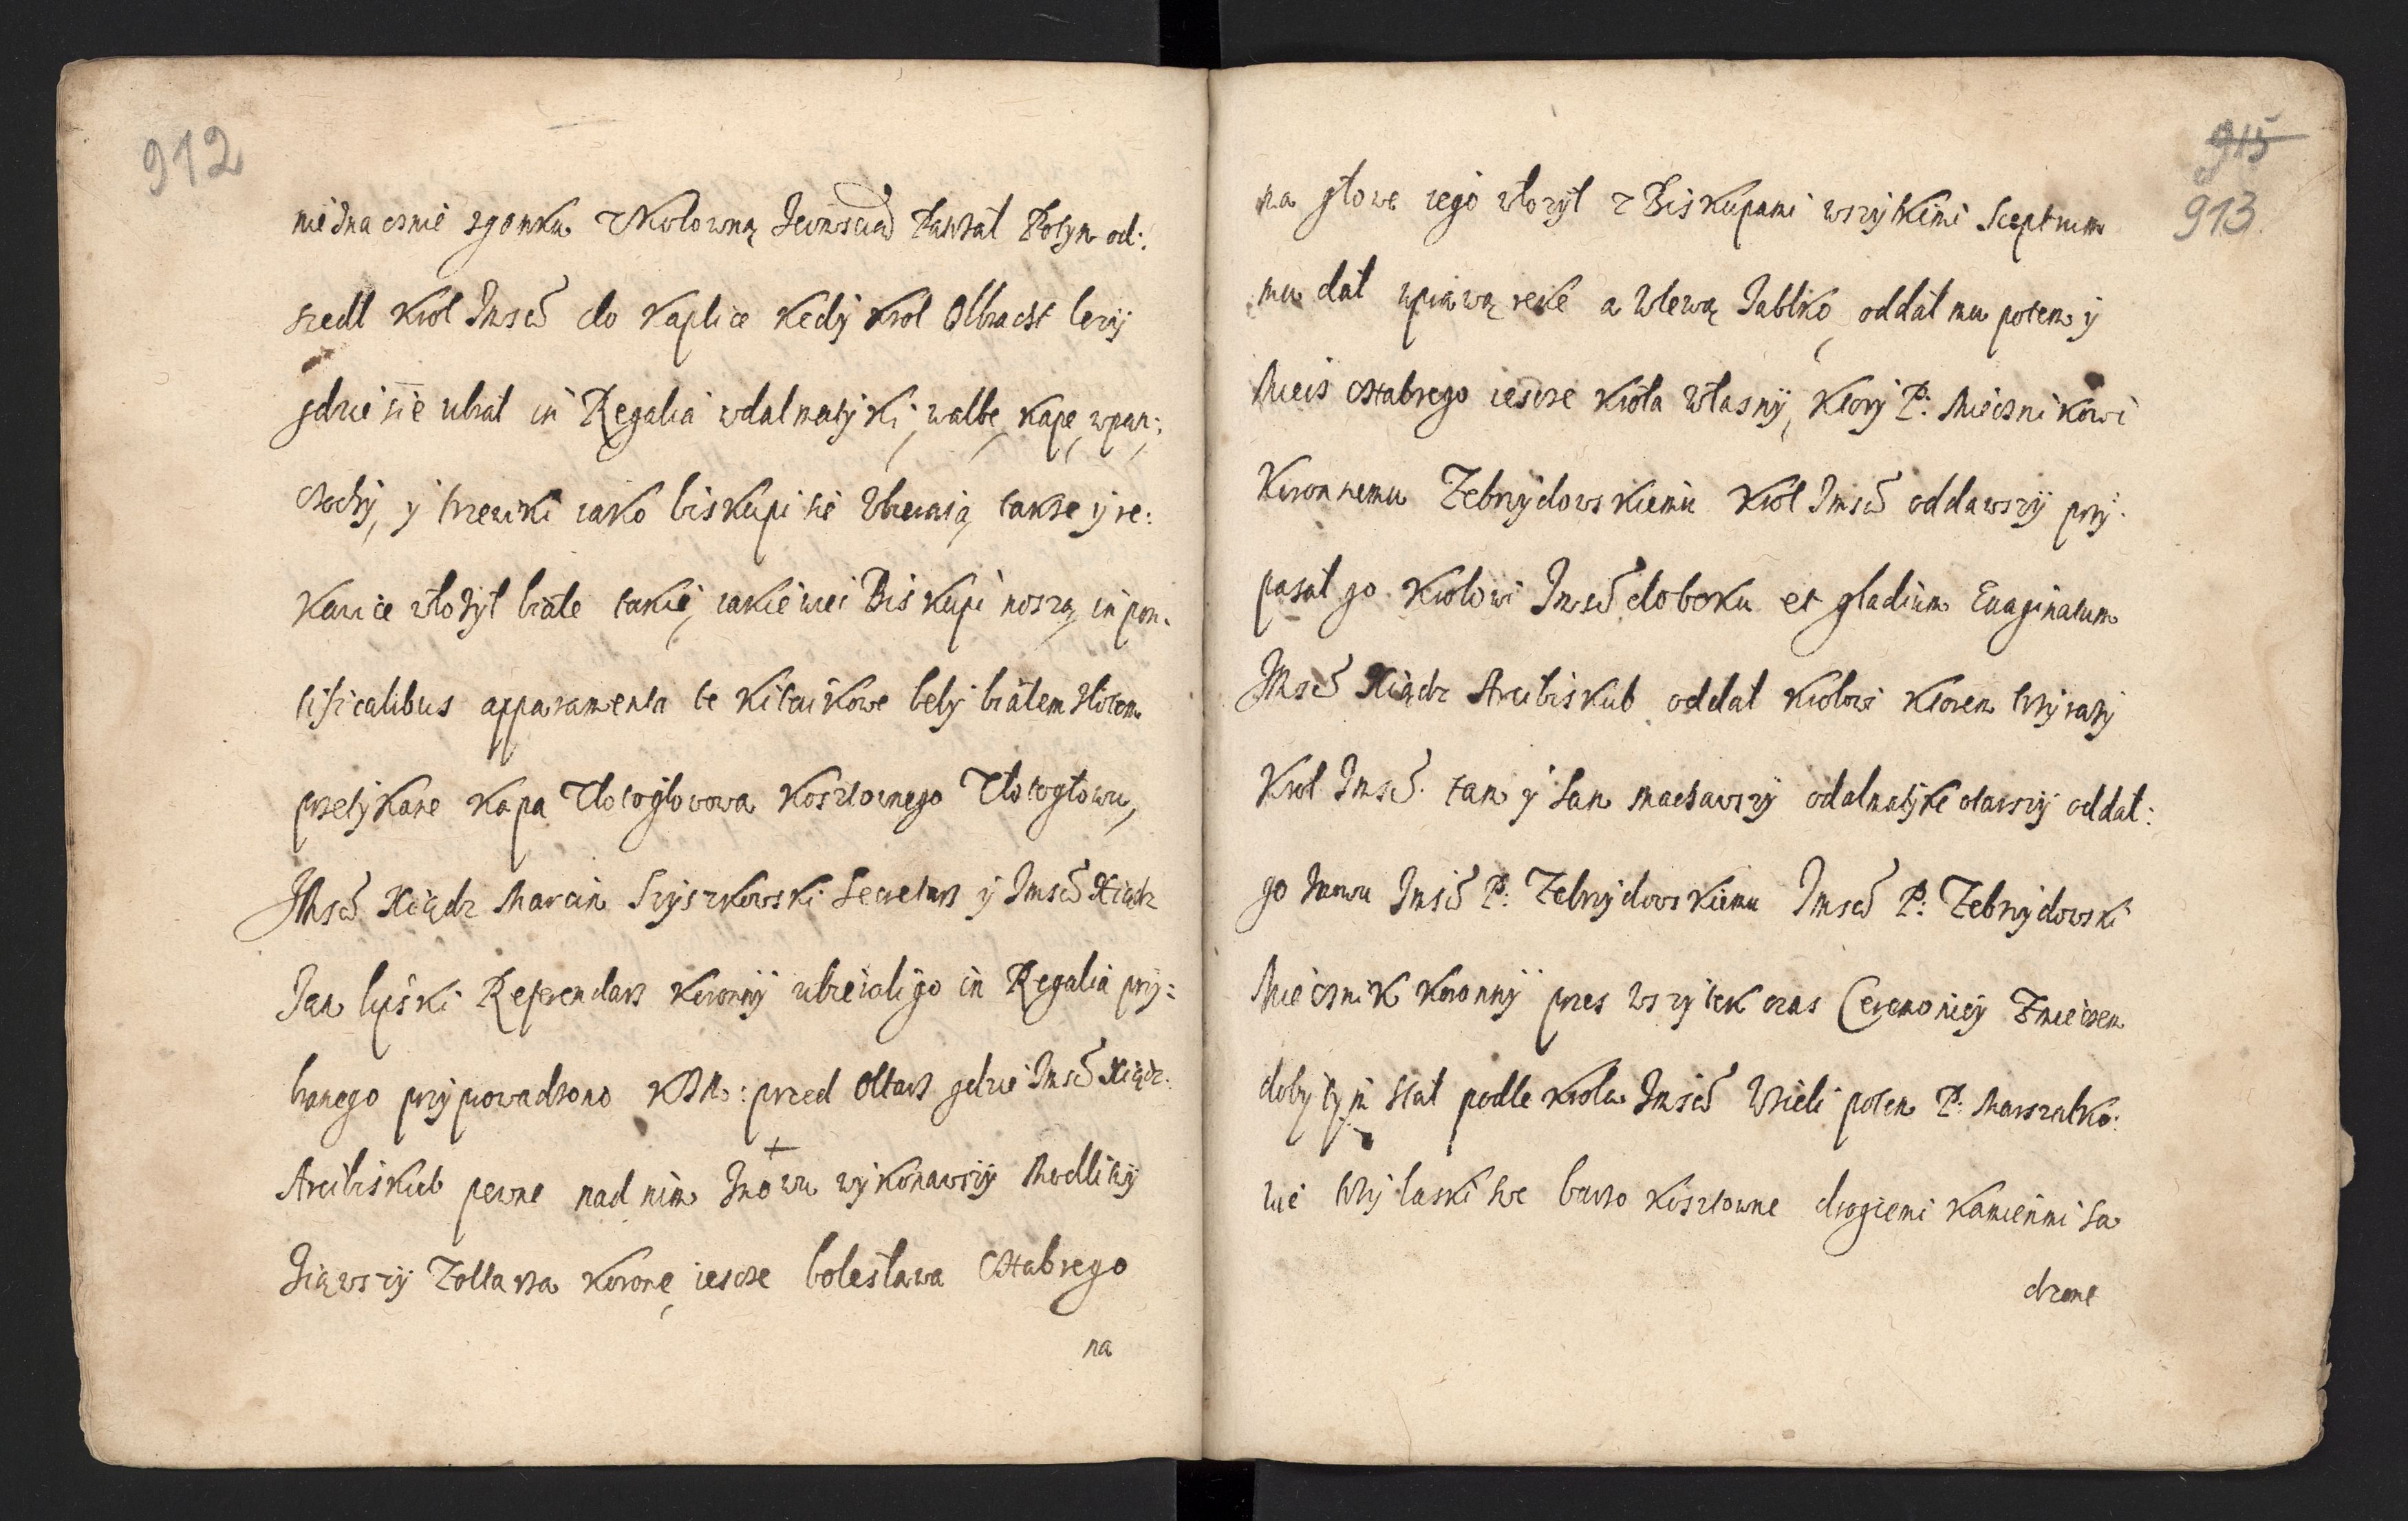 912
nieznacznie zgonku Krolowną Jeimscią Pawłat Potym od:
szedl Krol Jmsc do Kaplice Kedy Krol Olbracht lezy
gdzie sie ubrał in Regalia wdalmatyki, walbe, Kape, wpon:
czochy, y trzewiki iako biskupi sie Ubieraią, takze y re:
Kawice włozył białe takie, iakie wiec Biskupi noszą, in pon:
tificalibus apparamenta te Kitaikowe beły białem złotem
przetykane Kapa Złotogłowowa Kosztownego Złotogłowu,
JMsc Xiądz Marcin Szyszkowski Secretarz y Jmsc Xiądz
Jan lipski Referendarz Koronny ubierali go in Regalia przy:
branego przyprowadzono KJM: przed Ołtarz gdzie Jmsc Xiądz:
Arcibiskub pewne nad nim znowu wykonawszy Modlitwy
Ziąwszy Zołtarza Korone iescze bolesława Chrabrego
na
915
913.
na głowe iego włozył z Biskupami wszytkimi Sceptrum
mu dał wprawą reke a Wlewą Jabłko, oddał mu potem y
Miecz Chrabrego iescze Krola Własny, Ktory P: Miecznikowi
Koronnemu Zebrzydowskiemu Krol Jmsc oddawszy przy:
pasał go Krolowi Jmsc do boku et gladium Evaginatum
JMsc Xiądz Arcibiskub oddał Krolowi Ktorem trzy razy
Krol Jmsc tam y sam machawszy odalmatyke otarszy oddał:
go znowu Jmsc P: Zebrzydowskiemu Jmsc P: Zebrzydowski
Miecznik Koronny przes wszytek czas Ceremoniey Zmieczem
dobytym stał podle Krola Jmsc Wzieli potem P: Marszałko:
wie trzy laski swe barzo Kosztowne drogiemi Kamieńmi sa
dzone